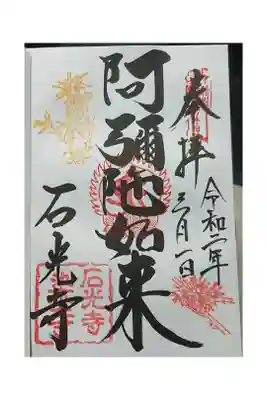 奉拝
令和二年
三月一日
阿彌陀如来
石光寺
石光寺